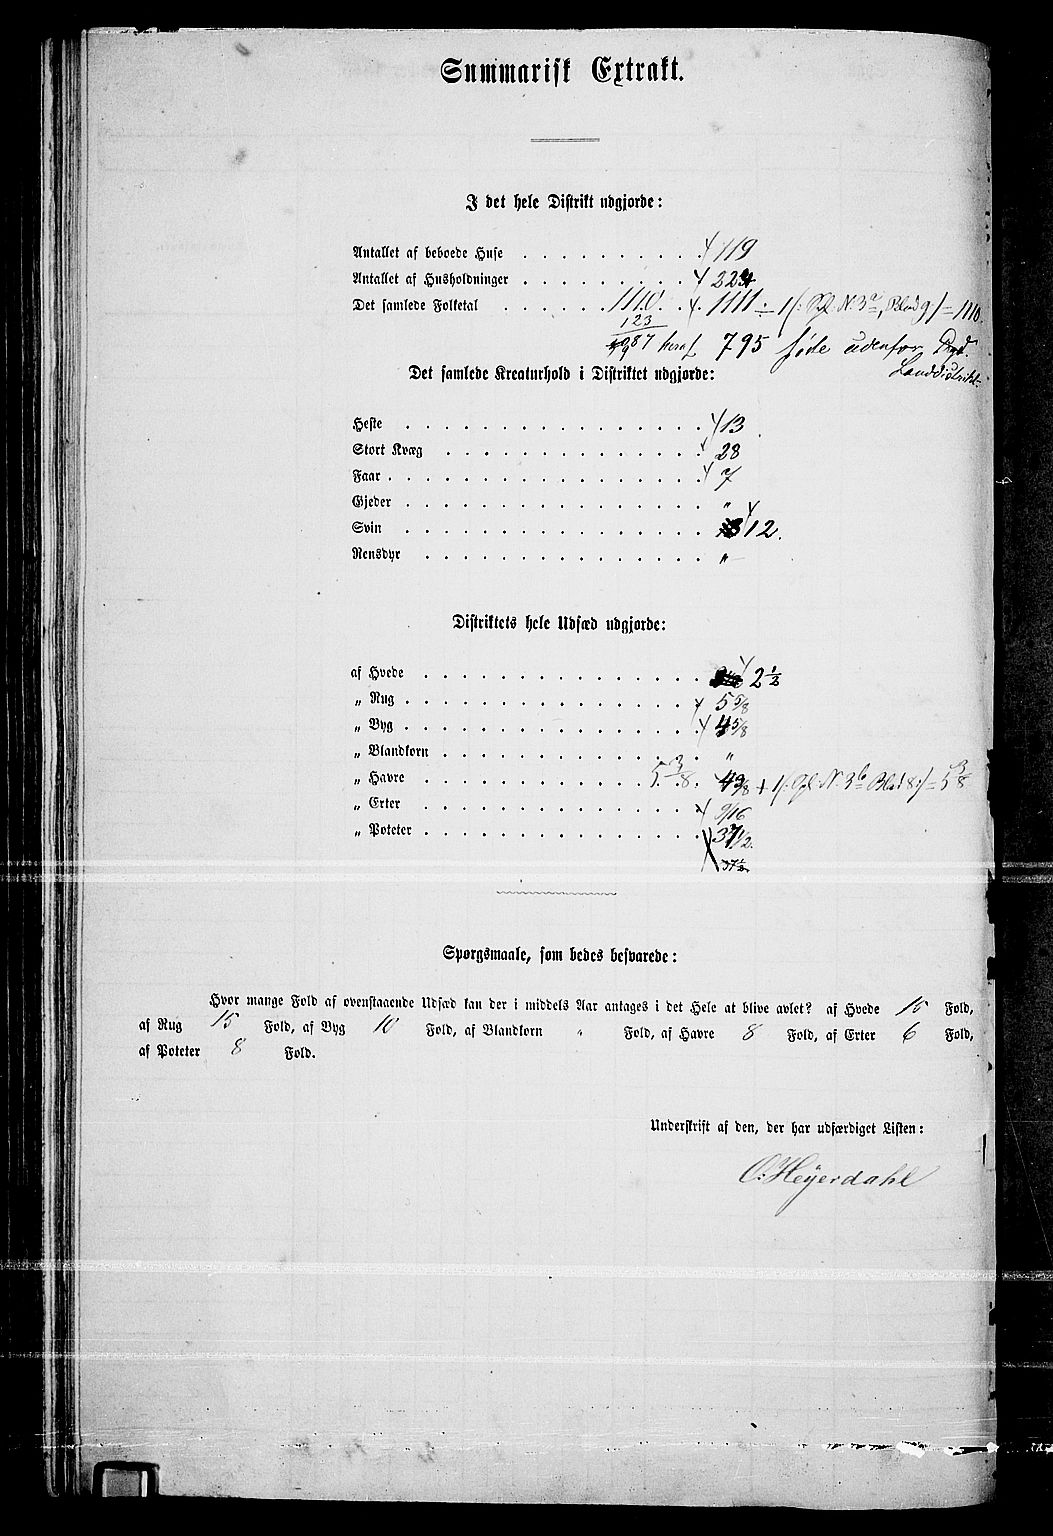 Summarisk Extrakt.
I det hele Distrikt udgjorde:
Antallet af beboede Huse . . . . . . . . . . 119
Antallet af Husholdninger . . . . . . . . . . 224
Det samlede Folketal . . . . . 1110. 1111 ÷ 1 (: Spl. N. 3a, Blad 9:) = 1110.
123
987 heraf 795 føde udenfor Bygd.
Landdistrikt.
Det samlede Kreaturhold i Distriktet udgjorde:
Heste . . . . . . . . . . . . . . . . 13
Stort Kvæg . . . . . . . . . . . . . . 28
Faar . . . . . . . . . . . . . . . . . 7
Gjeder . . . . . . . . . . . . . . . . "
Svin . . . . . . . . . . . . . . . . 12.
Rensdyr . . . . . . . . . . . . . . . "
Distriktets hele Udsæd udgjorde:
af Hvede . . . . . . . . . . . . . . . 2 1/2
„ Rug . . . . . . . . . . . . . . . . 5 5/8
„ Byg . . . . . . . . . . . . . . . . 4 5/8
„ Blandkorn . . . . . . . . . . . . . . "
„ Havre . . . . . . . . . . . . 5 3/8. 4 3/8 + 1 (: Spl. N. 3b Blad 8:) = 5 3/8
„ Erter . . . . . . . . . . . . . . . 9/16
„ Poteter . . . . . . . . . . . . . . . 37 1/2.
37 1/2
Spørgsmaale, som bedes besvarede:
Hvor mange Fold af ovenstaaende Udsæd kan der i middels Aar antages i det Hele at blive avlet? af Hvede 10 Fold,
af Rug 15 Fold, af Byg 10 Fold, af Blandkorn " Fold, af Havre 8 Fold, af Erter 6 Fold,
af Poteter 8 Fold.
Underskrift af den, der har udfærdiget Listen:
O. Heyerdahl